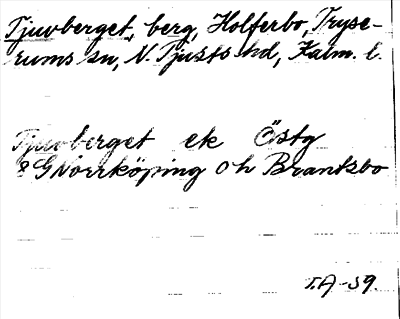 Tjuvberget, berg, Holferbo, Tryse-
rums sn, N. Tjusts hd, Kalm. l.
Tjuvberget ek Östg
8G Norrköping Oh Brantsbo
T.A-59.